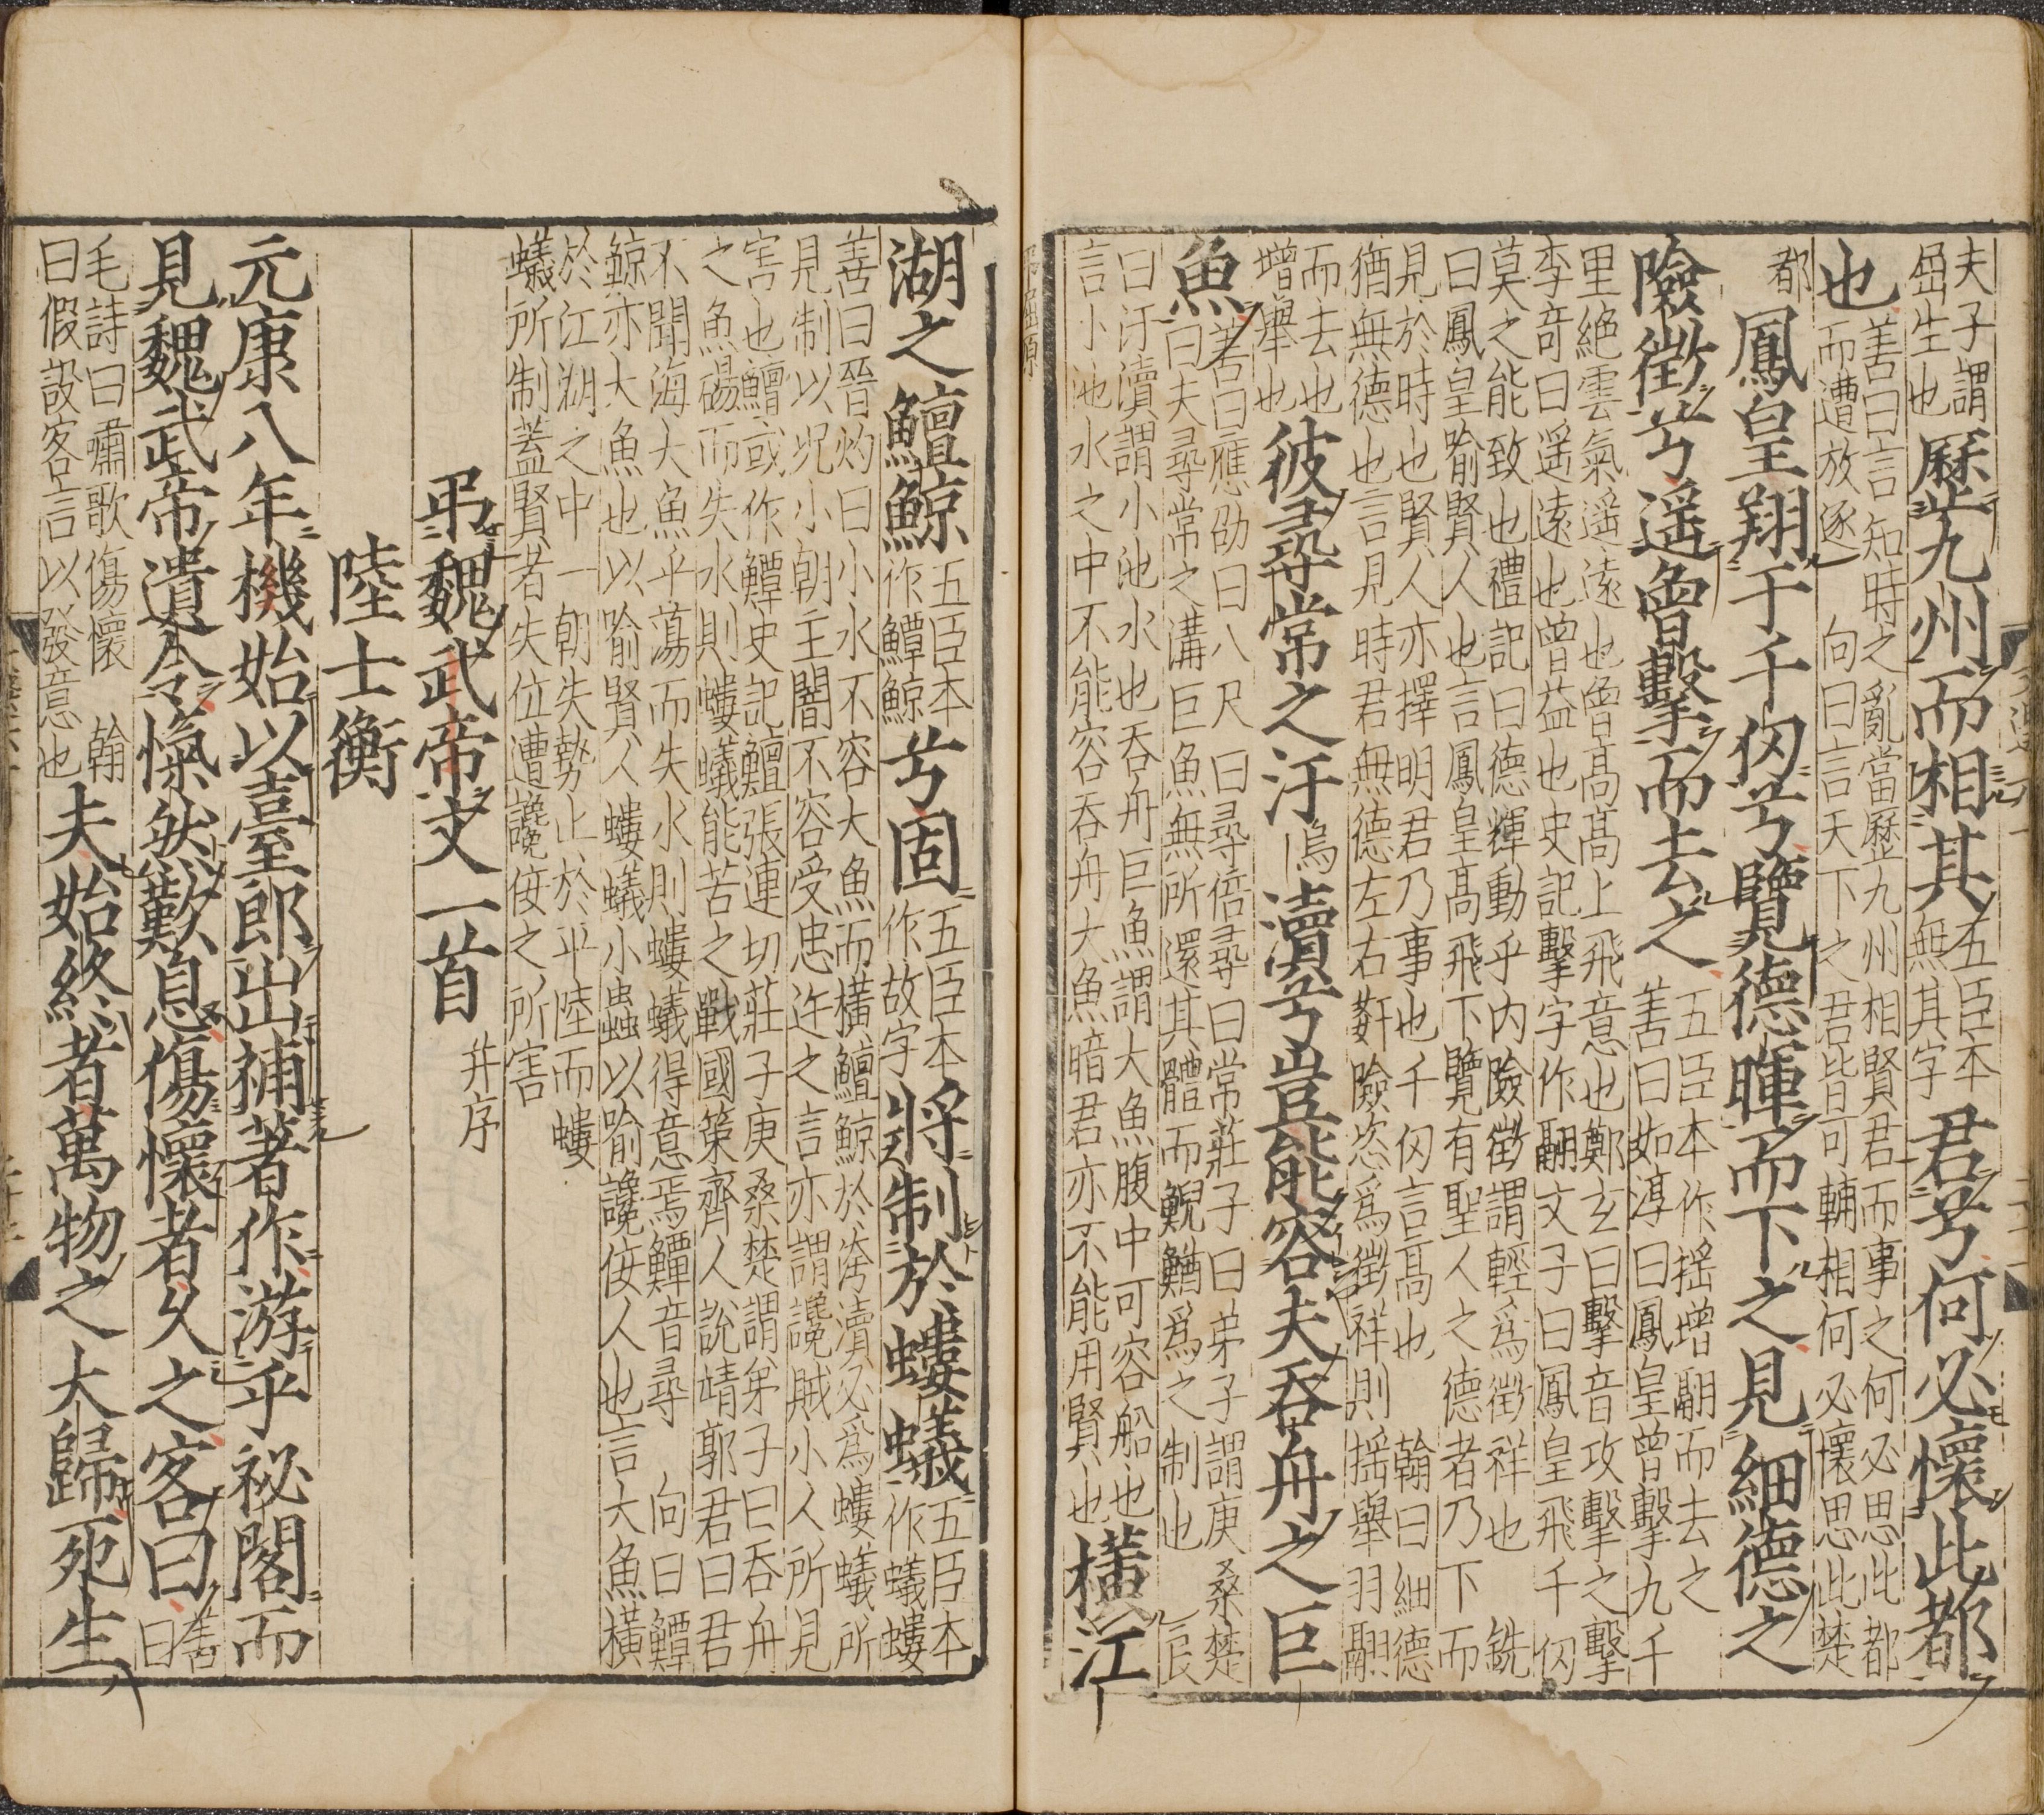 夫子謂
屈生也歷茈九州而相其五臣本
無其字君兮何必懷此都
也善曰言知時之亂當歷九州相賢君而事之何必思此都
而遭放逐 向曰言天下之君皆可輔相何必懷思此楚
都鳳皇翔于千仞兮覽德暉而下之見細德之
險徵兮遥曾擊而去之五臣本作揺增翮而去之
善曰如淳曰鳳皇曾擊九千
里絶雲氣遥遠也曾高高上飛意也鄭玄曰擊音攻擊之擊
李竒曰遥遠也曾益也史記擊字作翮文子曰鳳皇飛千仞
莫之能致也禮記曰德輝動乎内險徵謂輕爲徵祥也 銑
曰鳳皇喻賢人也言鳳皇高飛下覽有聖人之德者乃下而
見於時也賢人亦擇明君乃事也千仞言高也 翰曰細德
猶無德也言見時君無德左右姧險恣爲徵祥則揺舉羽翮
而去也
增舉也彼尋常之汙烏瀆兮豈能容夫吞舟之巨
魚善曰應劭曰八尺曰尋倍尋曰常莊子曰弟子謂庚桑楚
曰夫尋常之溝巨魚無所還其體而鯢鰌爲之制也 良
曰汙瀆謂小池水也吞舟巨魚謂大魚腹中可容船也
言小池水之中不能容吞舟大魚暗君亦不能用賢也橫江
湖之鱣鯨五臣本
作鱏鯨兮固五臣本
作故字將制於螻蟻五臣本
作蟻螻
善曰晉灼曰小水不容大魚而橫鱣鯨於洿瀆必爲螻蟻所
見制以况小朝主闇不容受忠迕之言亦謂讒賊小人所見
害也鱣或作鱏史記鱣張連切莊子庚桑楚謂弟子曰吞舟
之魚碭而失水則螻蟻能苦之戰國策齊人說靖郭君曰君
不聞海大魚乎蕩而失水則螻蟻得意焉鱏音尋 向曰鱏
鯨亦大魚也以喻賢人螻蟻小蟲以喻讒佞人也言大魚橫
於江湖之中一朝失勢止於平陸而螻
蟻所制蓋賢者失位遭讒佞之所害
弔魏武帝文一首并序
陸士衡
元康八年機始以臺郎出補著作游乎祕閣而
見魏武帝遺令愾然歎息傷懷者久之客曰善
曰
毛詩曰嘯歌傷懷 翰
曰假設客言以發意也夫始終者萬物之大歸死生